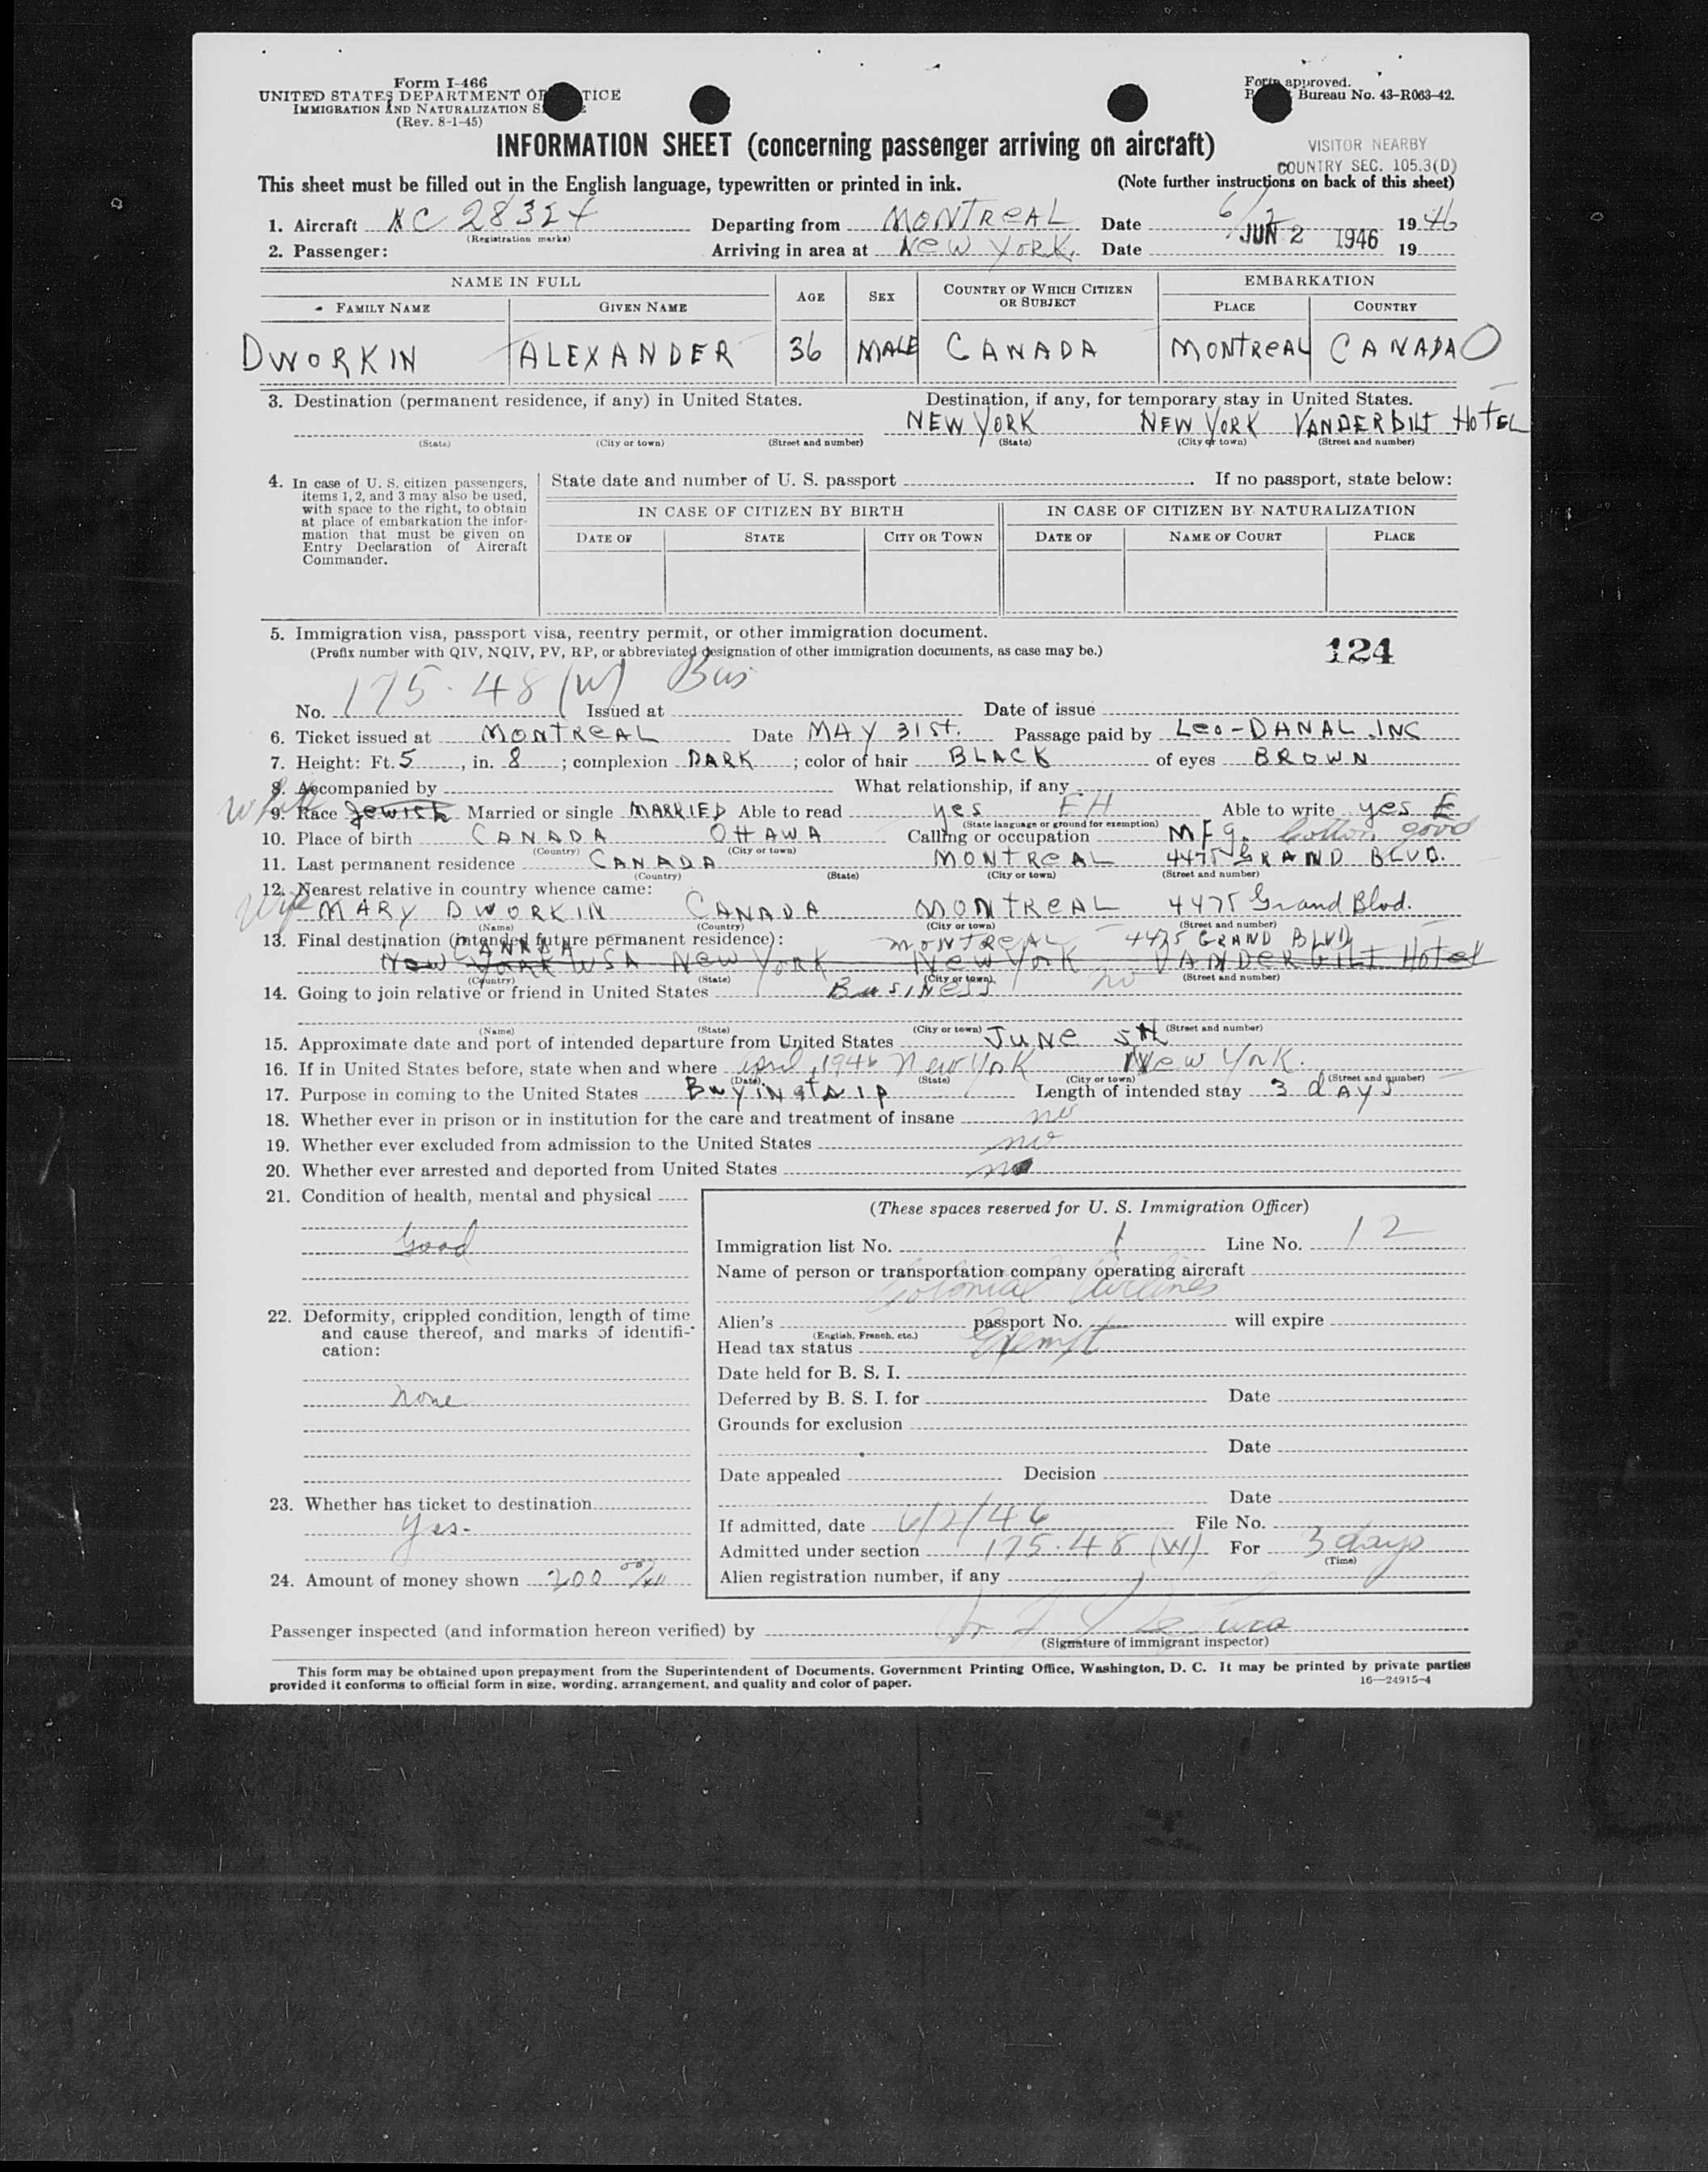 Form I-466
UNITED STATES DEPARTMENT OF JUSTICE
IMMIGRATION AND NATURALIZATION SERVICE
(Rev. 8-1-45)
Form approved.
Budget Bureau No. 43-R063-42.
INFORMATION SHEET (concerning passenger arriving on aircraft)
VISITOR NEARBY
COUNTRY SEC. 105.3(D)
This sheet must be filled out in the English language, typewritten or printed in ink. (Note further instructions on back of this sheet)
1. Aircraft NC 28324 Departing from MONTREAL Date 6/2 1946
(Registration marks)
2. Passenger: Arriving in area at NEW YORK. Date JUN 2 1946 19
NAME IN FULL AGE SEX COUNTRY OF WHICH CITIZEN OR SUBJECT EMBARKATION
FAMILY NAME GIVEN NAME PLACE COUNTRY
DWORKIN ALEXANDER 36 MALE CANADA MONTREAL CANADA O
3. Destination (permanent residence, if any) in United States. Destination, if any, for temporary stay in United States.
NEW YORK NEW YORK VANDERBILT HOTEL
(State) (City or town) (Street and number) (State) (City or town) (Street and number)
4. In case of U. S. citizen passengers, items 1, 2, and 3 may also be used, with space to the right, to obtain at place of embarkation the information that must be given on Entry Declaration of Aircraft Commander.
State date and number of U. S. passport . If no passport, state below:
IN CASE OF CITIZEN BY BIRTH IN CASE OF CITIZEN BY NATURALIZATION
DATE OF STATE CITY OR TOWN DATE OF NAME OF COURT PLACE
5. Immigration visa, passport visa, reentry permit, or other immigration document.
(Prefix number with QIV, NQIV, PV, RP, or abbreviated designation of other immigration documents, as case may be.)
124
No. 175.48 (W) Bus Issued at Date of issue
6. Ticket issued at MONTREAL Date MAY 31st. Passage paid by Leo-DANAL INC
7. Height: Ft. 5, in. 8; complexion DARK; color of hair BLACK of eyes BROWN
8. Accompanied by What relationship, if any
White
9. Race Jewish Married or single MARRIED Able to read yes EH Able to write yes E
(State language or ground for exemption)
10. Place of birth CANADA OTTAWA Calling or occupation MFg. Cotton good
(Country) (City or town)
11. Last permanent residence CANADA MONTREAL 4475 GRAND BLVD.
(Country) (State) (City or town) (Street and number)
12. Nearest relative in country whence came:
Wife MARY DWORKIN CANADA MONTREAL 4475 Grand Blvd.
(Name) (Country) (City or town) (Street and number)
13. Final destination (intended future permanent residence):
CANADA MONTREAL 4475 GRAND BLVD
New York USA New York New York VANDERBILT Hotel
(Country) (State) (City or town) (Street and number)
14. Going to join relative or friend in United States BUSINESS no
(Name) (State) (City or town) (Street and number)
15. Approximate date and port of intended departure from United States JUNE 5th
16. If in United States before, state when and where april, 1946 New York New York.
(Date) (State) (City or town) (Street and number)
17. Purpose in coming to the United States Buying trip Length of intended stay 3 days
18. Whether ever in prison or in institution for the care and treatment of insane no
19. Whether ever excluded from admission to the United States no
20. Whether ever arrested and deported from United States no
21. Condition of health, mental and physical
Good
22. Deformity, crippled condition, length of time and cause thereof, and marks of identification:
none
23. Whether has ticket to destination
Yes-
24. Amount of money shown 200 00/xx
(These spaces reserved for U. S. Immigration Officer)
Immigration list No. 1 Line No. 12
Name of person or transportation company operating aircraft
Colonial Airlines
Alien's passport No. will expire
(English, French, etc.)
Head tax status Exempt
Date held for B. S. I.
Deferred by B. S. I. for Date
Grounds for exclusion
Date
Date appealed Decision
Date
If admitted, date 6/2/46 File No.
Admitted under section 175.48 (W) For 3 days
(Time)
Alien registration number, if any
Passenger inspected (and information hereon verified) by
(Signature of immigrant inspector)
This form may be obtained upon prepayment from the Superintendent of Documents, Government Printing Office, Washington, D. C. It may be printed by private parties
provided it conforms to official form in size, wording, arrangement, and quality and color of paper. 16—24915-4